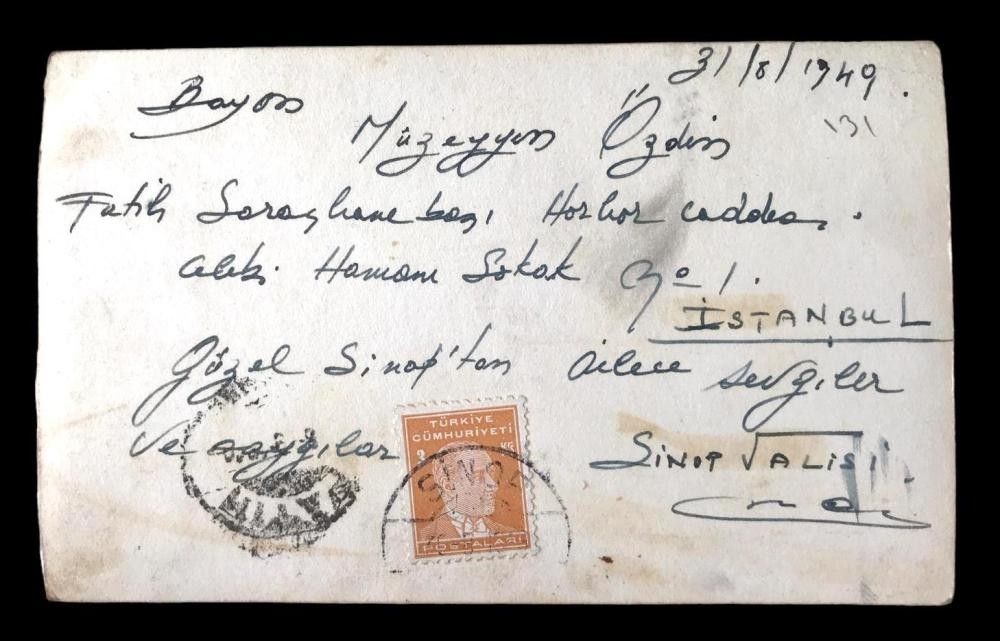 31/8/1949.
Bayan
131
Müzeyyen Özdin
Fatih Saraçhane başı Horhor caddesi.
Hamam Sokak No 1.
İSTANBUL
Güzel Sinop'tan ailece sevgiler
ve saygılar
SİNOP VALİSİ
TÜRKİYE
CÜMHURİYETİ
POSTALARI
SİNOP
FATİH